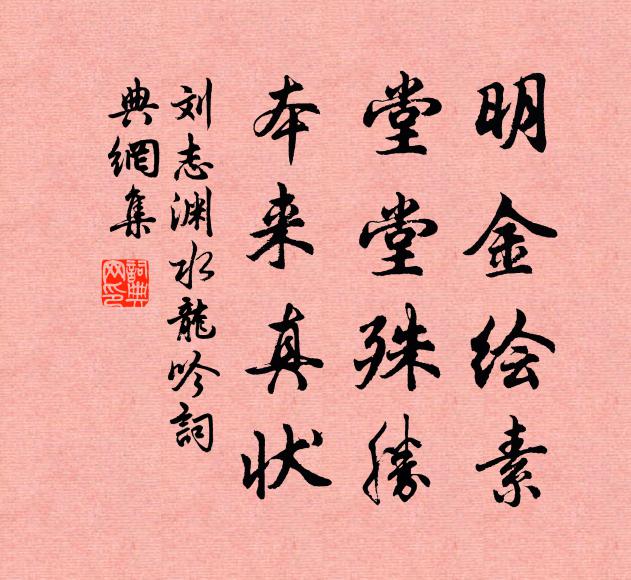 明金绘素
堂堂殊勝
本来真状
刘志渊水龍吟詞
典網集
詞典网印